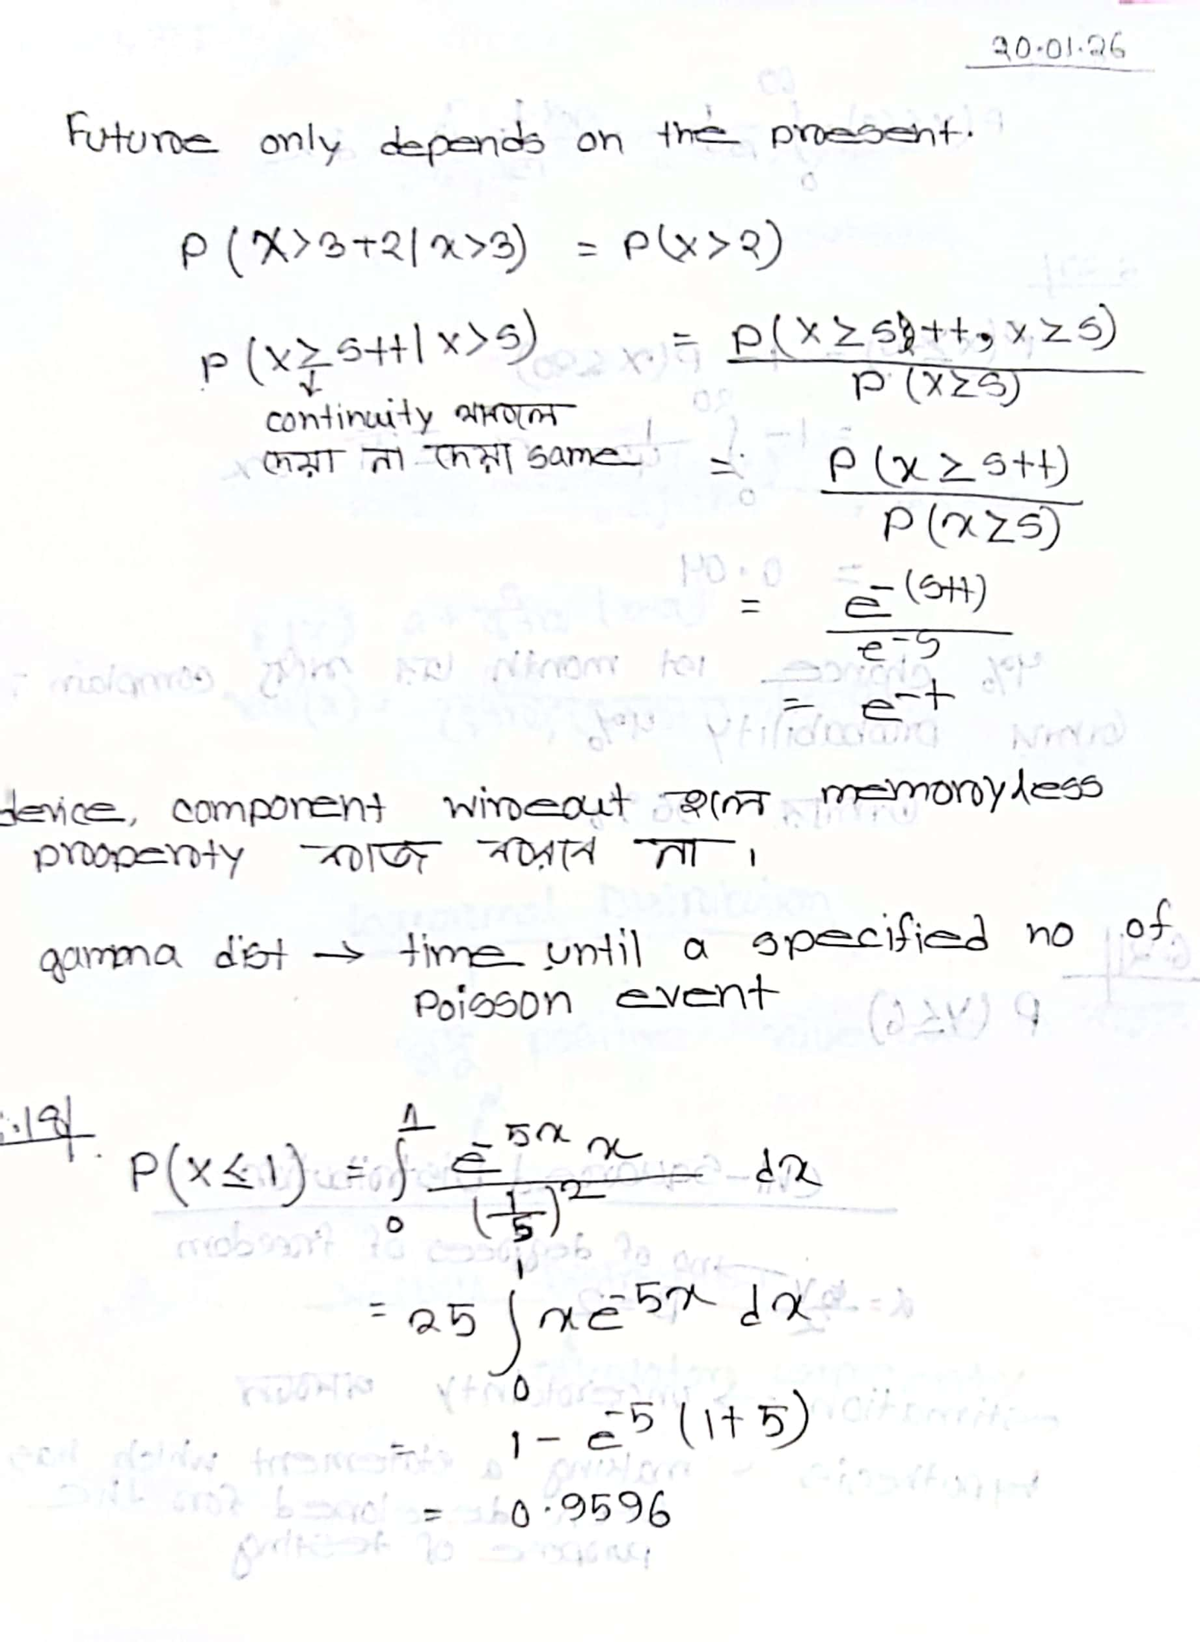 20.01.26
Future only depends on the present.
P(X>3+2|x>3) = P(x>2)
P(x≥s+t|x>s) = P(x≥s+t, x≥s) / P(x≥s)
↓
continuity থাকলে
দেয়া না দেয়া same
= P(x≥s+t) / P(x≥s)
= e^-(s+t) / e^-s
= e^-t
device, component wireout হলে memoryless
property কাজ করবে না।
gamma dist → time until a specified no of
Poisson event
.18|
P(x≤1) = ∫₀¹ e^-5x x / (1/5)² dx
= 25 ∫₀¹ xe^-5x dx
= 1 - e^-5 (1+5)
= 0.9596